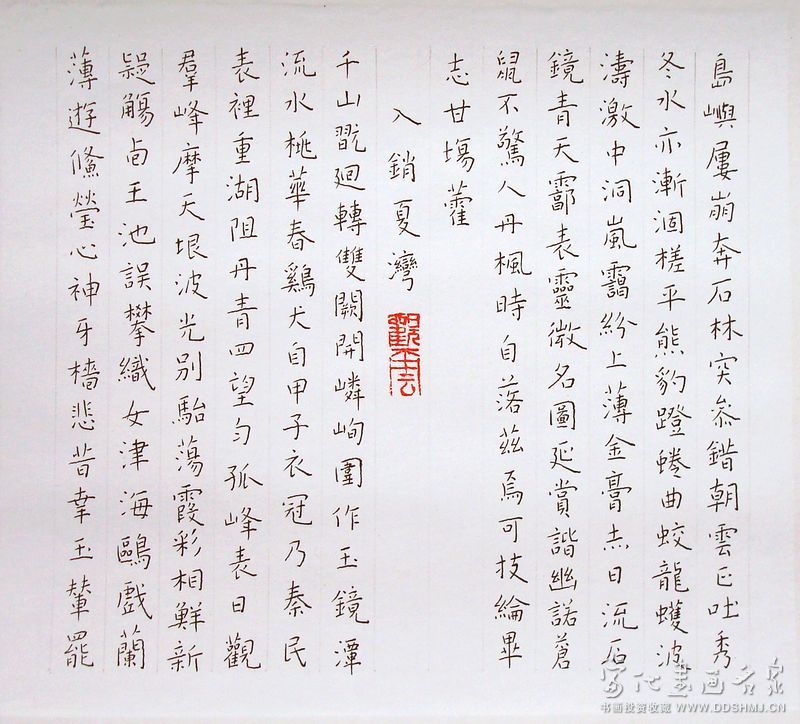 島嶼屢崩奔石林突參錯朝雲已吐秀
冬水亦漸涸槎平熊豹蹬蜷曲蛟龍蠖波
濤激中洞嵐靄紛上薄金膏赤日流石
鏡青天霩表靈微名圖延賞諧幽諾蒼
鼠不驚人丹楓時自落茲焉可投綸畢
志甘塲藿
入銷夏灣
千山翫廻轉雙闕開嶙峋圍作玉鏡潭
流水桃華春鷄犬自甲子衣冠乃秦民
表裡重湖阻丹青四望勻孤峰表日觀
羣峰摩天垠波光別駘蕩霞彩相鮮新
疑觴卣王池誤攀織女津海鷗戲蘭
薄遊鯈瑩心神牙檣悲昔幸玉輦罷
當代書畫名家
书画投资收藏 WWW.DDSHMJ.CN